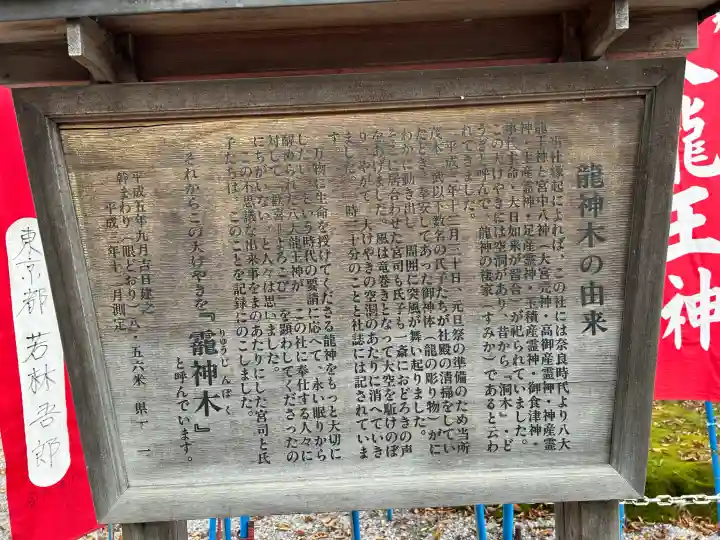 龍神木の由来
当社縁起によれば、この社には奈良時代より八大
龍王神と宮中八神（大宮売神・高御産霊神・神産霊
神・生産霊神・足産霊神・玉積産霊神・御食津神・
事代主命・大日如来が習合）が祀られていました。
この大けやきには空洞があり、昔から「洞木」・ど
うぎと呼んで、龍神の棲家（すみか）であると云わ
れてきました。
平成二年十二月三十日、元日祭の準備のため当所
茂木 武以下数名の氏子たちが社殿の清掃をしてい
たとき、奉安してあった御神体（龍の彫り物）がに
わかに動き出し、周囲に突風が舞い起りました。
ときに居合わせた宮司も氏子も一斎におどろきの声
をあげました。風は竜巻きとなって大空を駈けのぼ
り、やがて、大けやきの空洞のあたりに消へていき
ました。 時 二十分のことと社誌には記されていま
す。
万物に生命を授けてくださる龍神をもっと大切に
したい、という時代の要請に応へて、永い眠りから
醒められた八大龍王神が、この社に奉仕する人々に
対して、歓喜＝よろこび＝を顕わしてくださったの
にちがいない、と人々は思いました。
この不思議な出来事をまのあたりにした宮司と氏
子たちは、このことを記録にのこしました。
それからこの大けやきを『龗神木』
りゅうじんぼく
と呼んでいます。
平成五年九月吉日建之
幹まわり（眼どおり）八・五六米 県下 一
平成二年十一月測定
大龍王神
東京都 若林吾郎